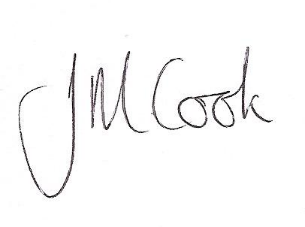 JM Cook